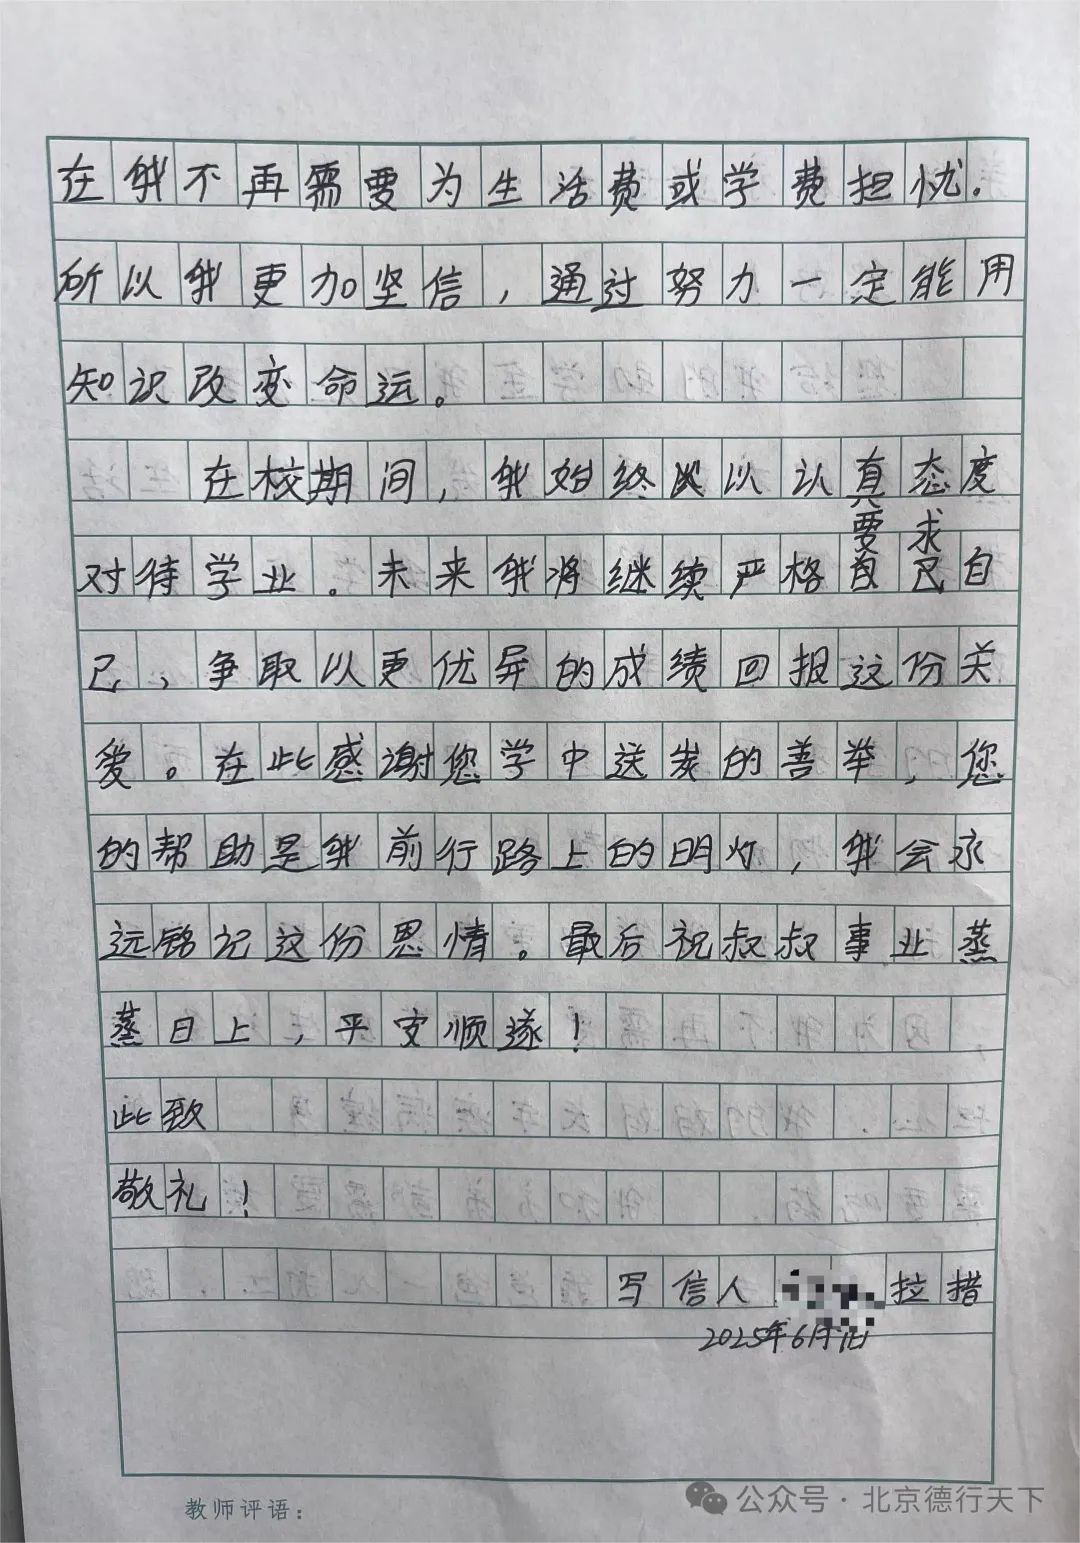 在我不再需要为生活费或学费担忧.
所以我更加坚信,通过努力一定能用
知识改变命运。
在校期间,我始终以以认真态度
要求
对待学业。未来我将继续严格自己自
己,争取以更优异的成绩回报这份关
爱。在此感谢您学中送炭的善举,您
的帮助是我前行路上的明灯,我会永
远铭记这份恩情。最后祝叔叔事业蒸
蒸日上,平安顺遂!
此致
敬礼!
写信人 拉措
2025年6月1日
教师评语:
公众号·北京德行天下